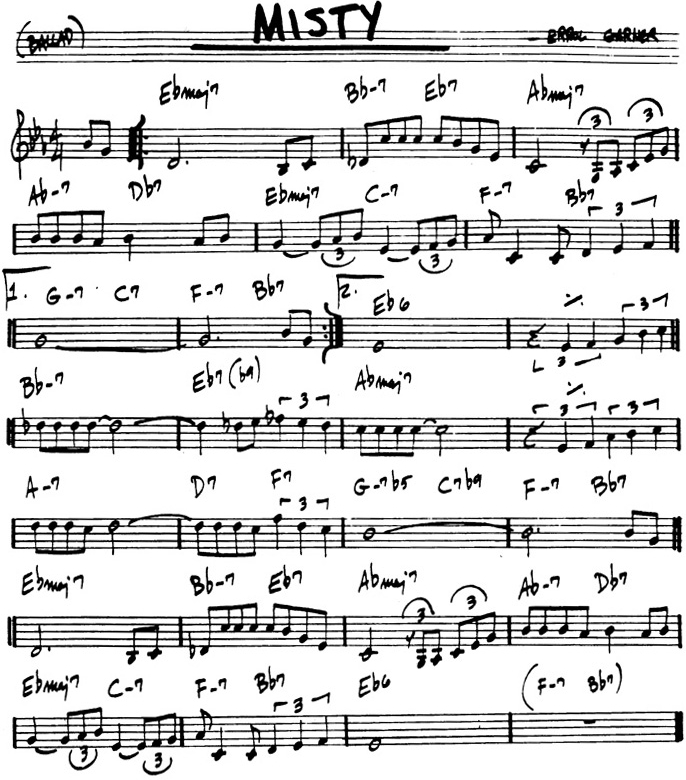 MISTY
(BALLAD) - ERROL GARNER
Ebmaj7 Bb-7 Eb7 Abmaj7
4 4 3 3
Ab-7 Db7 Ebmaj7 C-7 F-7 Bb7
3 3 3
1. G-7 C7 F-7 Bb7 2. Eb6
3 3
Bb-7 Eb7(b9) Abmaj7
3 3 3
A-7 D7 F7 G-7b5 C7b9 F-7 Bb7
3
Ebmaj7 Bb-7 Eb7 Abmaj7 Ab-7 Db7
3 3
Ebmaj7 C-7 F-7 Bb7 Eb6 (F-7 Bb7)
3 3 3